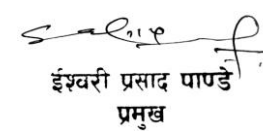 ईश्वरी प्रसाद पाण्डे
प्रमुख